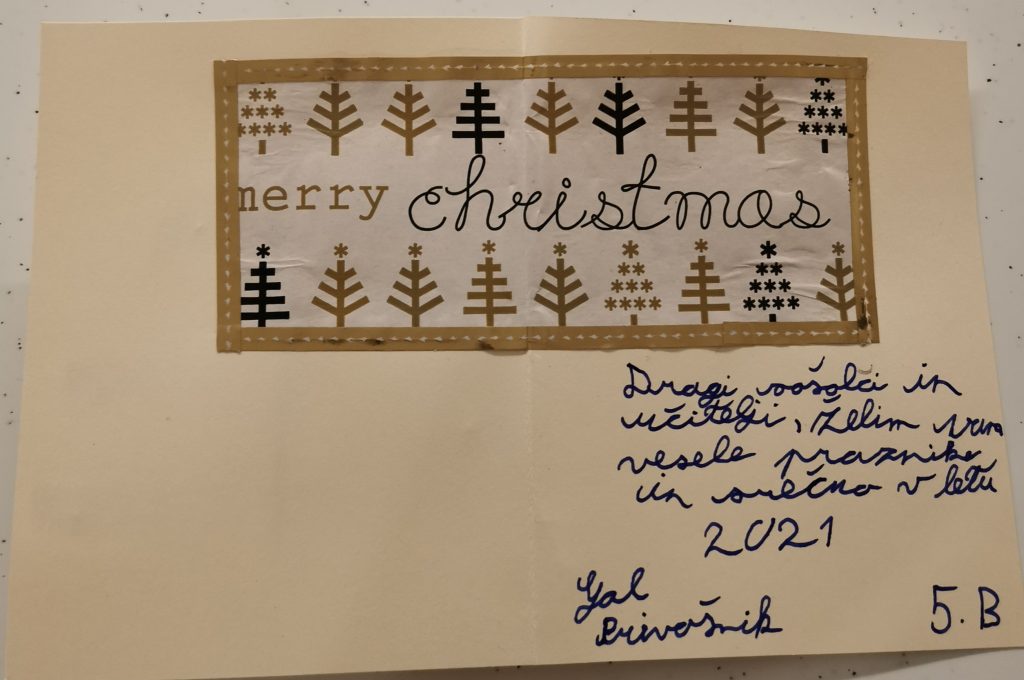 merry christmas
Dragi sošolci in
učitelji, želim vam
vesele praznike
in srečno v letu
2021
Gal
Privošnik
5. B